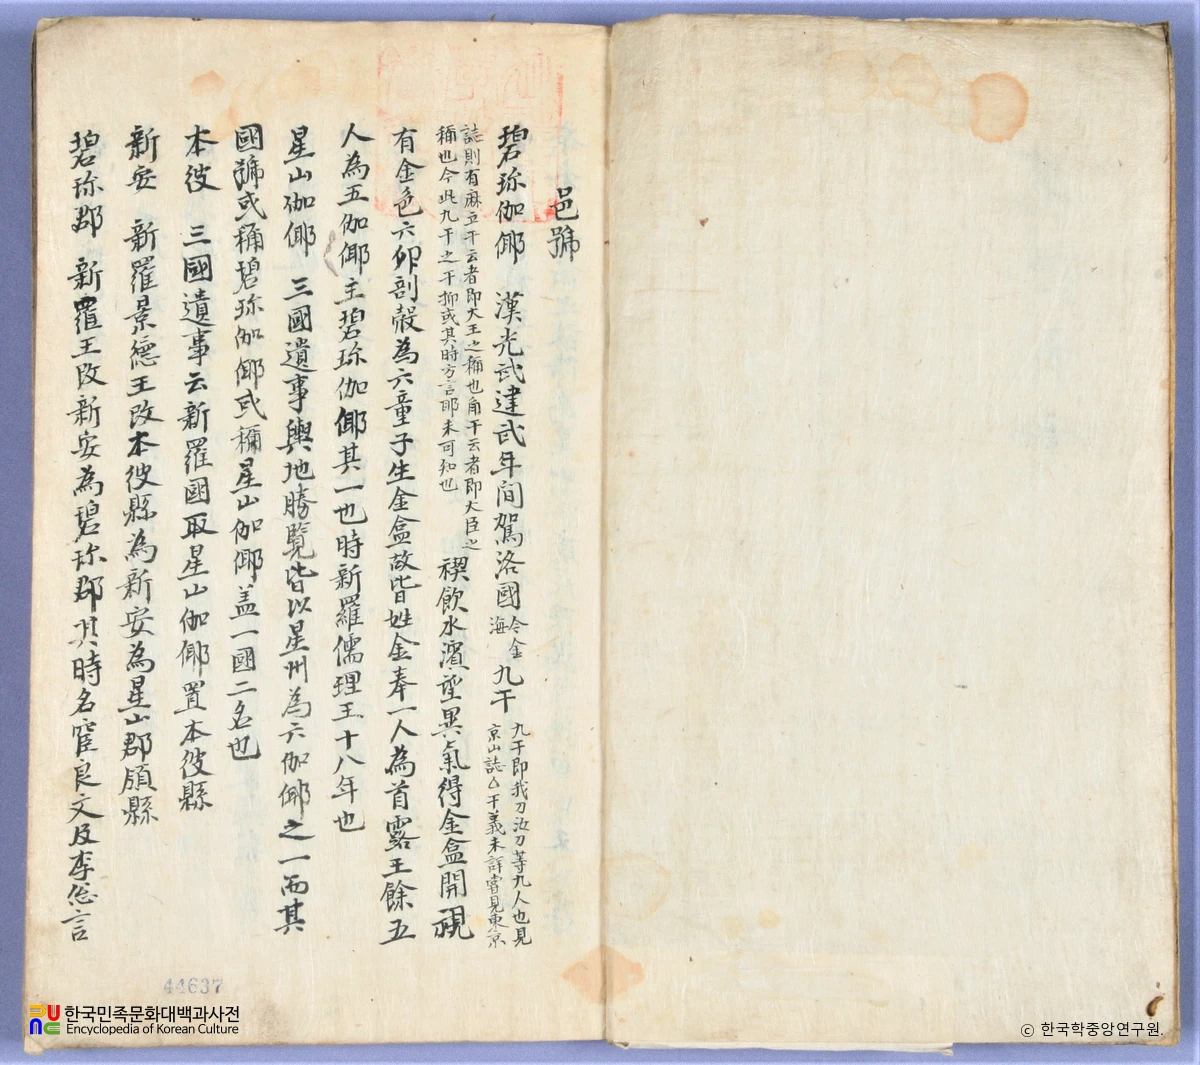 邑號
碧珍伽倻 漢光武建武年间駕洛國今金海九干九干即我刀汝刀等九人也見京山誌厶干義未詳嘗見東京
誌則有麻立干云者即大王之稱也角干云者即大臣之稱也今此九干之干抑或其時方言耶未可知也禊飮水濱望異氣得金盒開視
有金色六卵剖殼為六童子生金盒故皆姓金奉一人為首露王餘五
人為五伽倻主碧珍伽倻其一也時新羅儒理王十八年也
星山伽倻 三國遺事輿地勝覽皆以星州為六伽倻之一而其
國號或稱碧珍伽倻或稱星山伽倻盖一國二名也
本彼 三國遺事云新羅國取星山伽倻置本彼縣
新安 新羅景德王改本彼縣為新安為星山郡領縣
碧珍郡 新羅王改新安為碧珍郡其時名宦良文及李忩言
44637
한국민족문화대백과사전
Encyclopedia of Korean Culture
© 한국학중앙연구원.